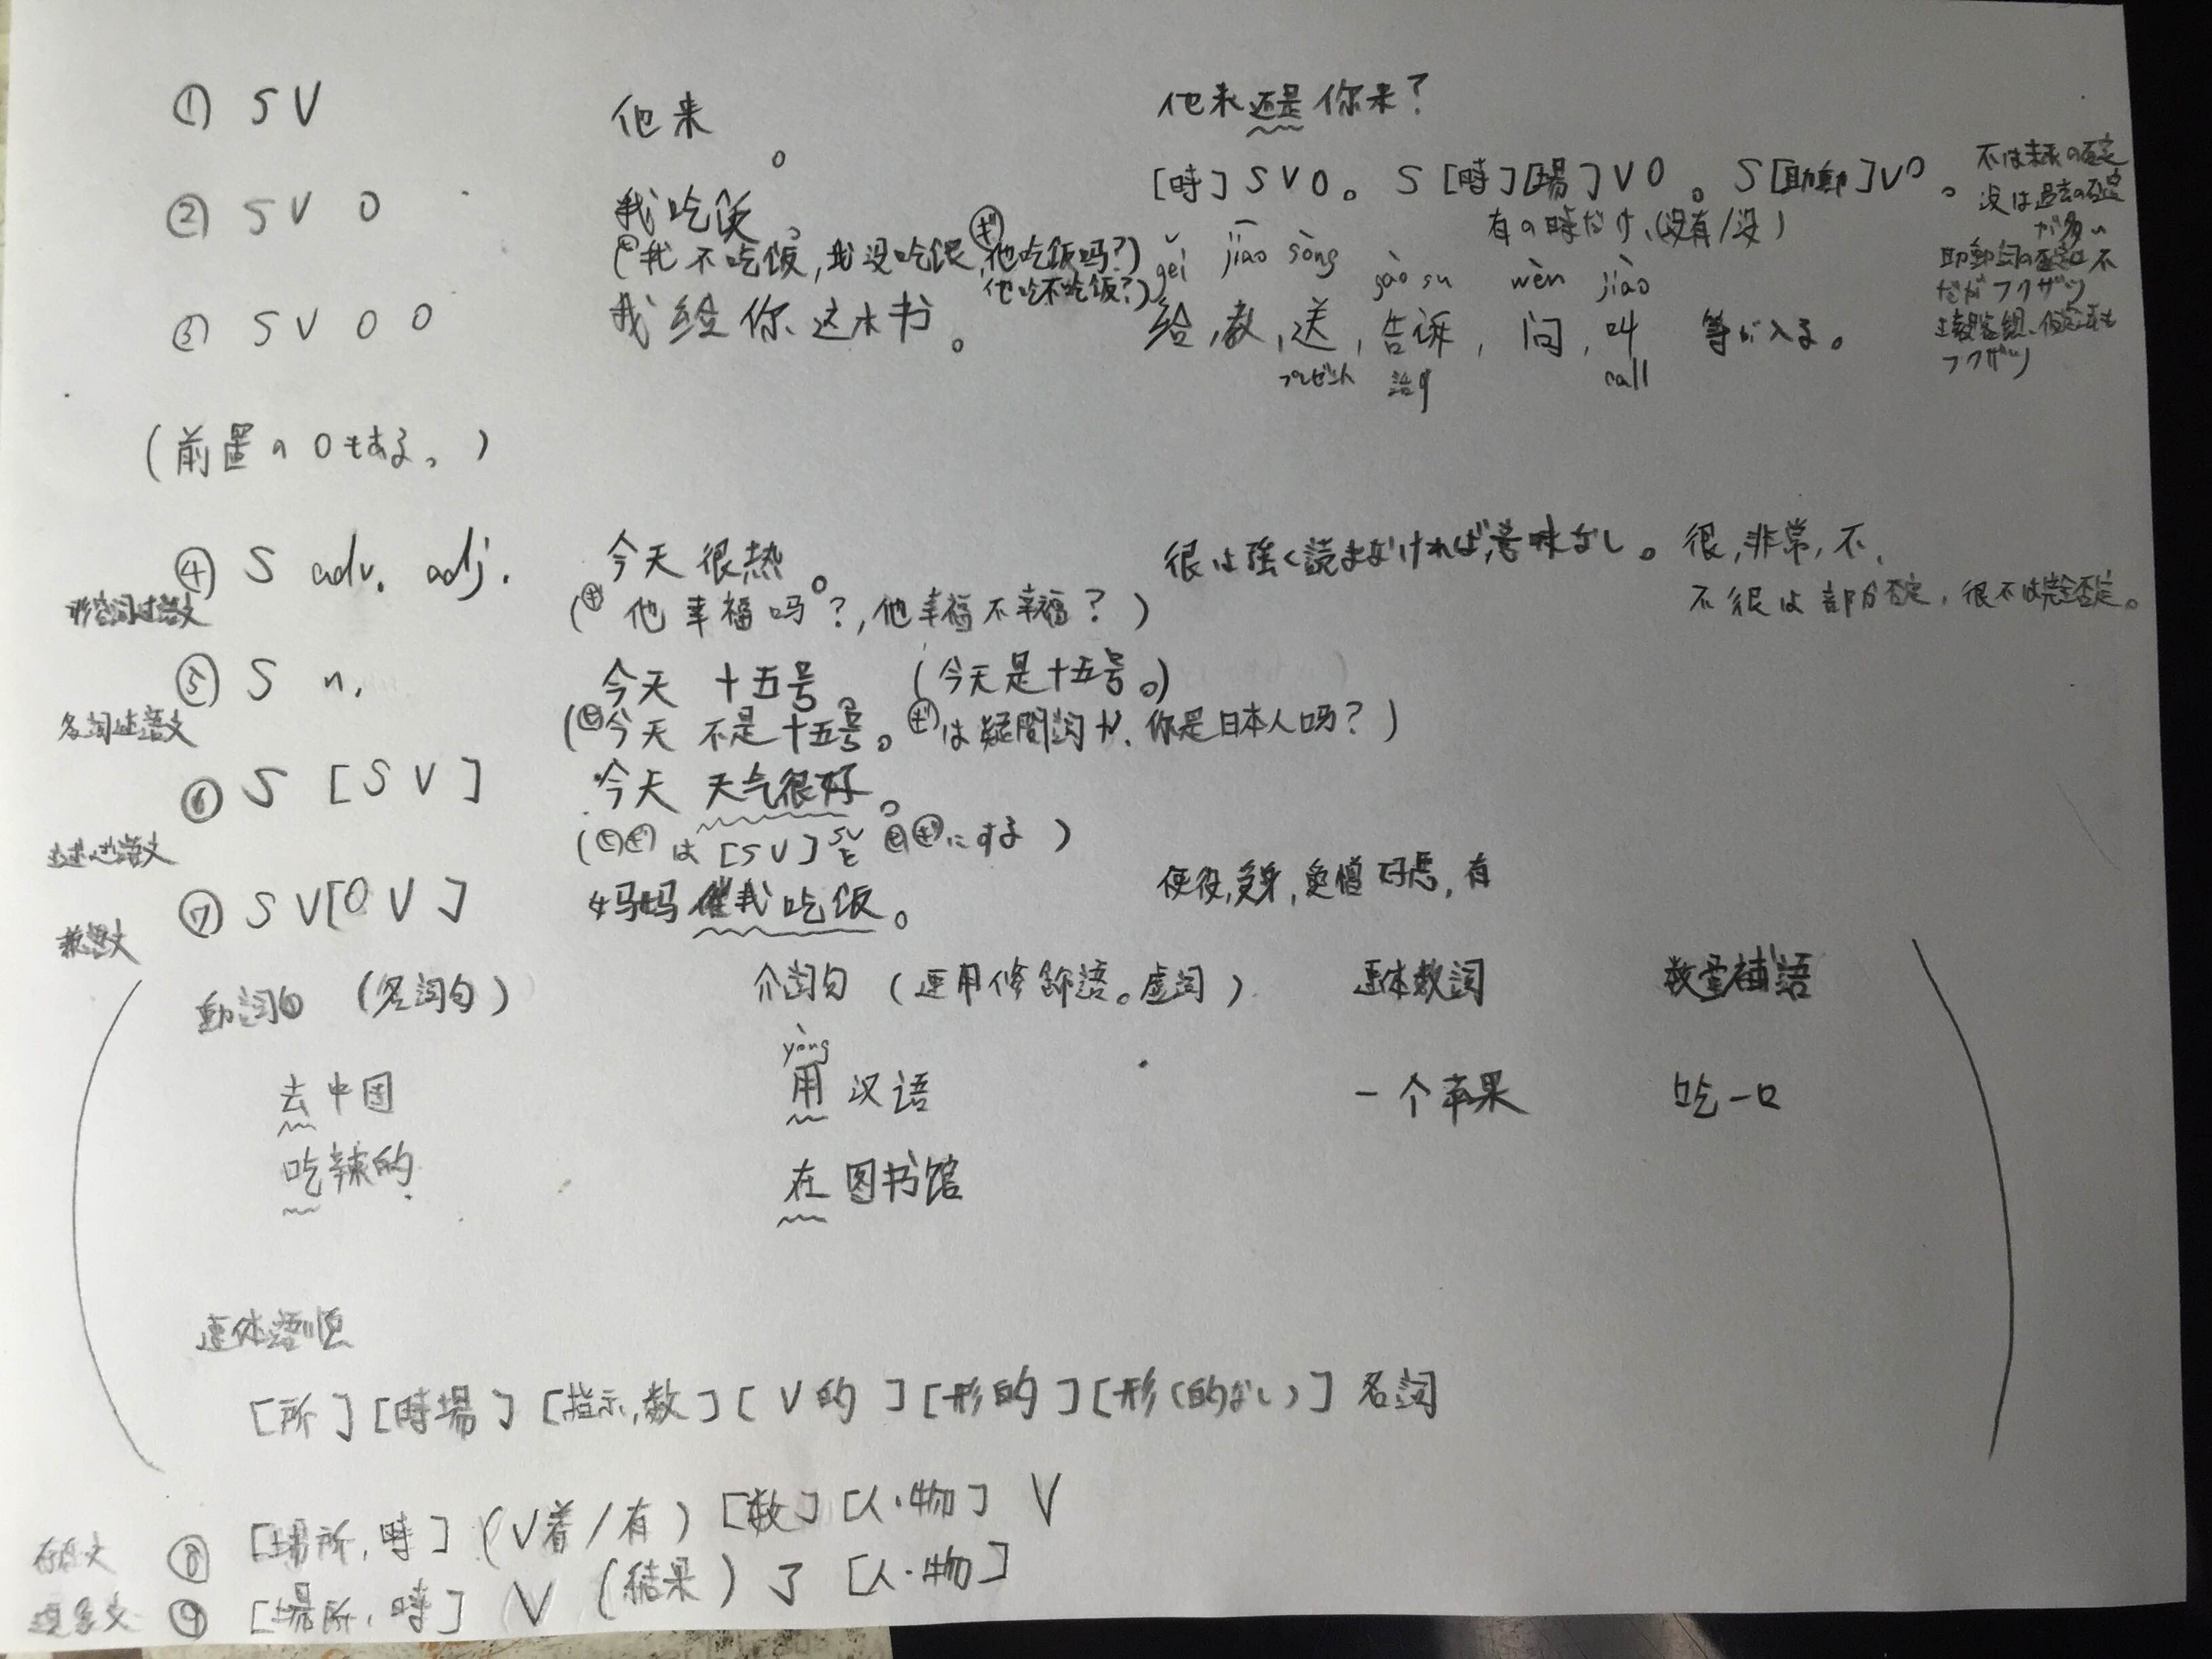 ① S V 他来。 他来还是你来？
② S V O 我吃饭。 [時] S V O。 S [時][場] V O。 S [助動] V O。
不は未来の否定
没は過去の否定
が多い
有の時だけ、(没有/没)
(ヒ我不吃饭,我没吃饭,ギ他吃饭吗？)
他吃不吃饭？)
助動詞の否定は不
だがフクザツ
フクザツ
gěi jiāo sòng gào su wèn jiào
③ S V O O 我给你这本书。 给,教,送,告诉,问,叫 等が入る。
プレゼント 話す call
(前置のOもある。)
④ S adv. adj. 今天很热。 很は強く読まなければ意味なし。 很,非常,不、
形容詞述語文 (ギ他幸福吗？,他幸福不幸福？) 不很は部分否定,很不は完全否定。
⑤ S n. 今天 十五号。 (今天是十五号。)
名詞述語文 (ヒ今天不是十五号。ギは疑問詞か、你是日本人吗？)
⑥ S [S V] 今天 天气很好。
主述述語文 (ヒギは[SV]をヒギにする)
⑦ S V[O V] 妈妈催我吃饭。 使役,受身,愛憎好悪,有
兼語文
動詞句 (名詞句) 介詞句 (連用修飾語。虚詞) 連体数詞 数量補語
yòng
去中国 用汉语 一个苹果 吃一口
吃辣的 在图书馆
連体語順
[所][時場][指示,数][V的][形的][形(的なし)]名詞
存在文 ⑧ [場所,時](V着/有)[数][人・物] V
⑨ [場所,時] V (結果)了[人・物]